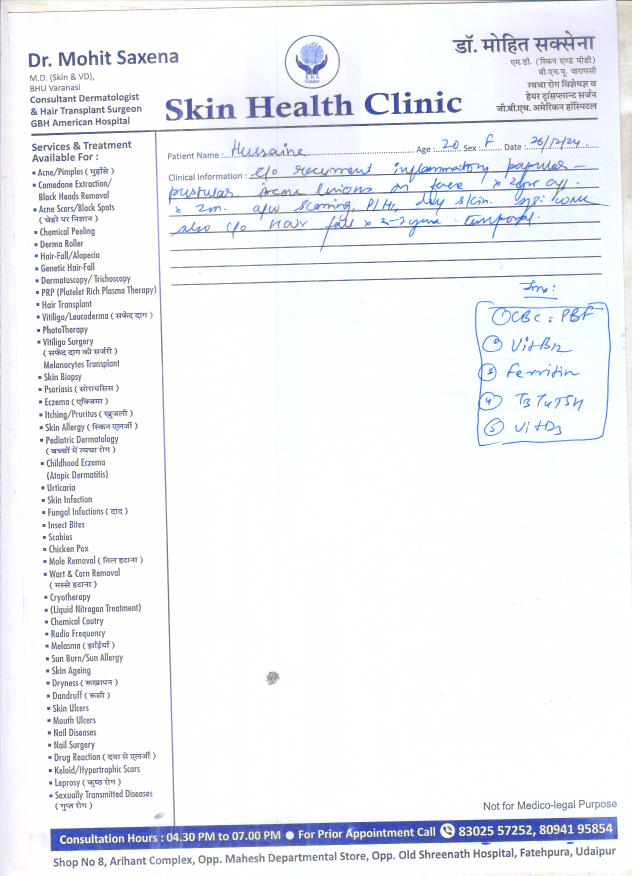 Dr. Mohit Saxena
M.D. (Skin & VD),
BHU Varanasi
Consultant Dermatologist
& Hair Transplant Surgeon
GBH American Hospital
SHC
Skin Health Clinic
डॉ. मोहित सक्सेना
एम.डी. (स्किन एण्ड वीडी)
बी.एच.यू. वाराणसी
त्वचा रोग विशेषज्ञ व
हेयर ट्रांसप्लान्ट सर्जन
जी.बी.एच. अमेरिकन हॉस्पिटल
Services & Treatment
Available For :
Acne/Pimples ( मुहाँसे )
Comedone Extraction/
Black Heads Removal
Acne Scars/Black Spots
( चेहरे पर निशान )
Chemical Peeling
Derma Roller
Hair-Fall/Alopecia
Genetic Hair-Fall
Dermatoscopy/ Trichoscopy
PRP (Platelet Rich Plasma Therapy)
Hair Transplant
Vitiligo/Leucoderma ( सफेद दाग )
PhotoTherapy
Vitiligo Surgery
( सफेद दाग की सर्जरी )
Melanocytes Transplant
Skin Biopsy
Psoriasis ( सोरायसिस )
Eczema ( एक्जिमा )
Itching/Pruritus ( खुजली )
Skin Allergy ( स्किन एलर्जी )
Pediatric Dermatology
( बच्चों में त्वचा रोग )
Childhood Eczema
(Atopic Dermatitis)
Urticaria
Skin Infection
Fungal Infections ( दाद )
Insect Bites
Scabies
Chicken Pox
Mole Removal ( तिल हटाना )
Wart & Corn Removal
( मस्से हटाना )
Cryotherapy
(Liquid Nitrogen Treatment)
Chemical Cautry
Radio Frequency
Melasma ( झाँईयाँ )
Sun Burn/Sun Allergy
Skin Ageing
Dryness ( रूखापन )
Dandruff ( रूसी )
Skin Ulcers
Mouth Ulcers
Nail Diseases
Nail Surgery
Drug Reaction ( दवा से एलर्जी )
Keloid/Hypertrophic Scars
Leprosy ( कुष्ठ रोग )
Sexually Transmitted Diseases
( गुप्त रोग )
Patient Name : Hussaina Age : 20 Sex : F Date : 26/12/24
Clinical Information : c/o recurrent inflammatory papular-
pustular acne lesions on face x 2
x 2m. a/w scarring, PIH, dry skin.
also c/o Hair fall x 2-3 temporal.
Inv:
① CBC : PBF
② Vit B12
③ Ferritin
④ T3 T4 TSH
⑤ Vit D3
Not for Medico-legal Purpose
Consultation Hours : 04.30 PM to 07.00 PM ● For Prior Appointment Call 83025 57252, 80941 95854
Shop No 8, Arihant Complex, Opp. Mahesh Departmental Store, Opp. Old Shreenath Hospital, Fatehpura, Udaipur